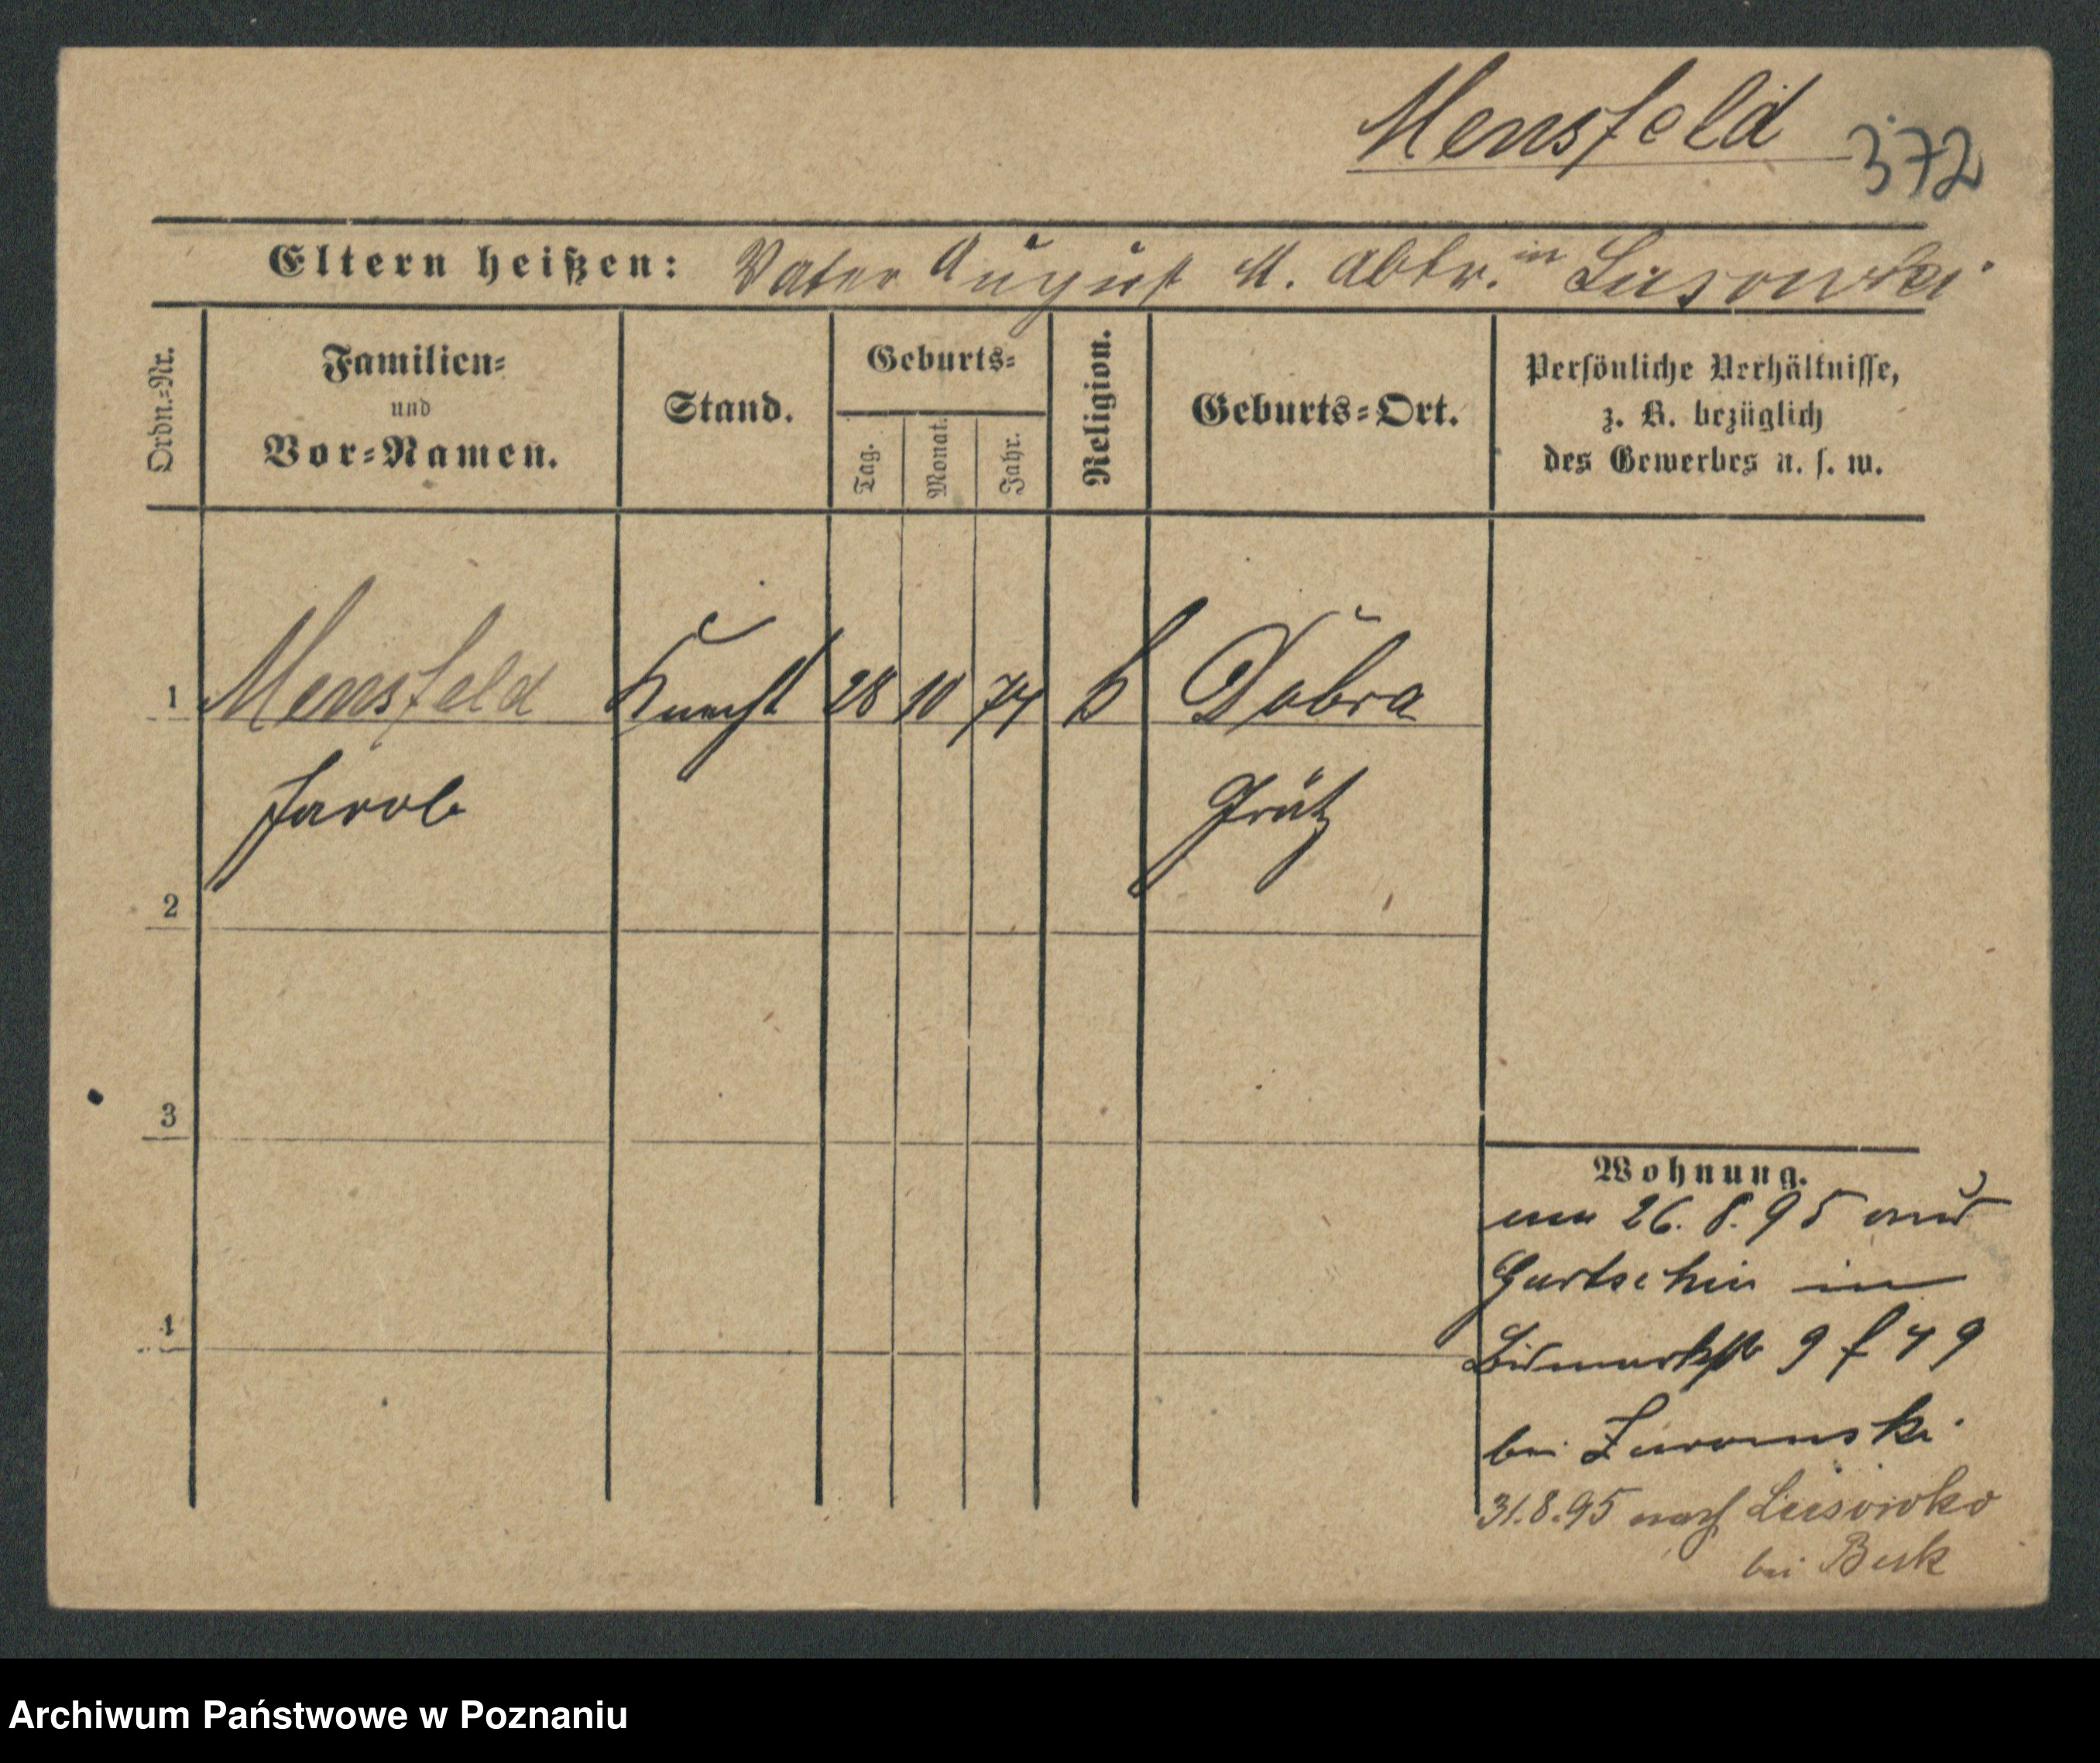 Mensfeld 372
Eltern heißen: Vater August M. Abtr. in Lusowki
Ordn.-Nr.
Familien=
und
Vor=Namen.
Stand.
Geburts=
Tag.
Monat.
Jahr.
Religion.
Geburts=Ort.
Persönliche Verhältnisse,
z. B. bezüglich
des Gewerbes u. s. w.
1 Mensfeld Knecht 28 10 74 k Dobra
Jacob Grätz
2
3
4
Wohnung.
26. 8. 95
Gurtschin in
Bismarkstr 9
bei
31.8.95 nach Lusowko
bei Buk
Archiwum Państwowe w Poznaniu